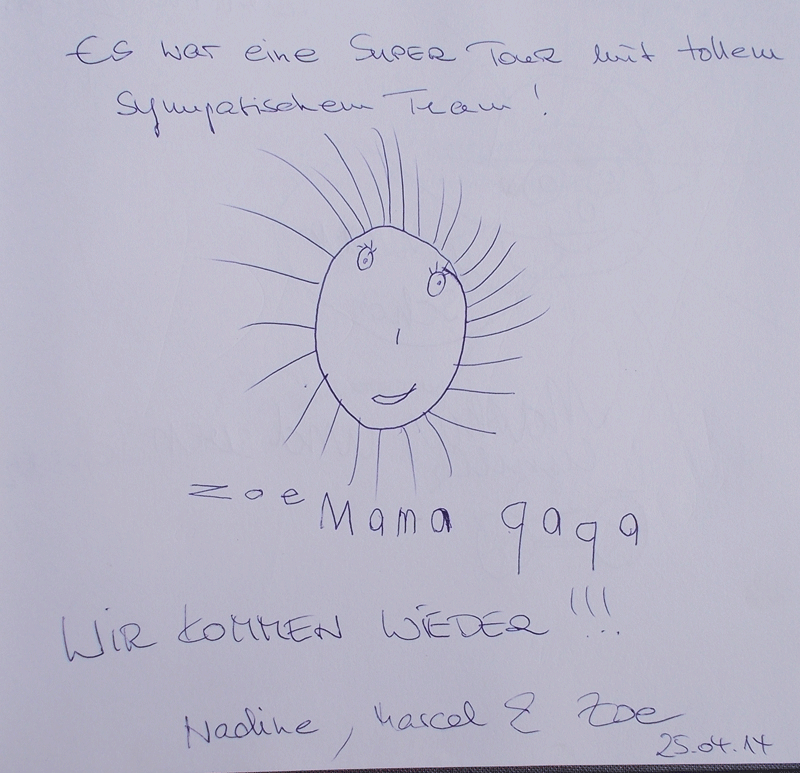 Es war eine SUPER Tour mit tollem
sympatischem Team!
zoe Mama gaga
WIR KOMMEN WIEDER!!!
Nadine, Marcel & Zoe
25.04.14